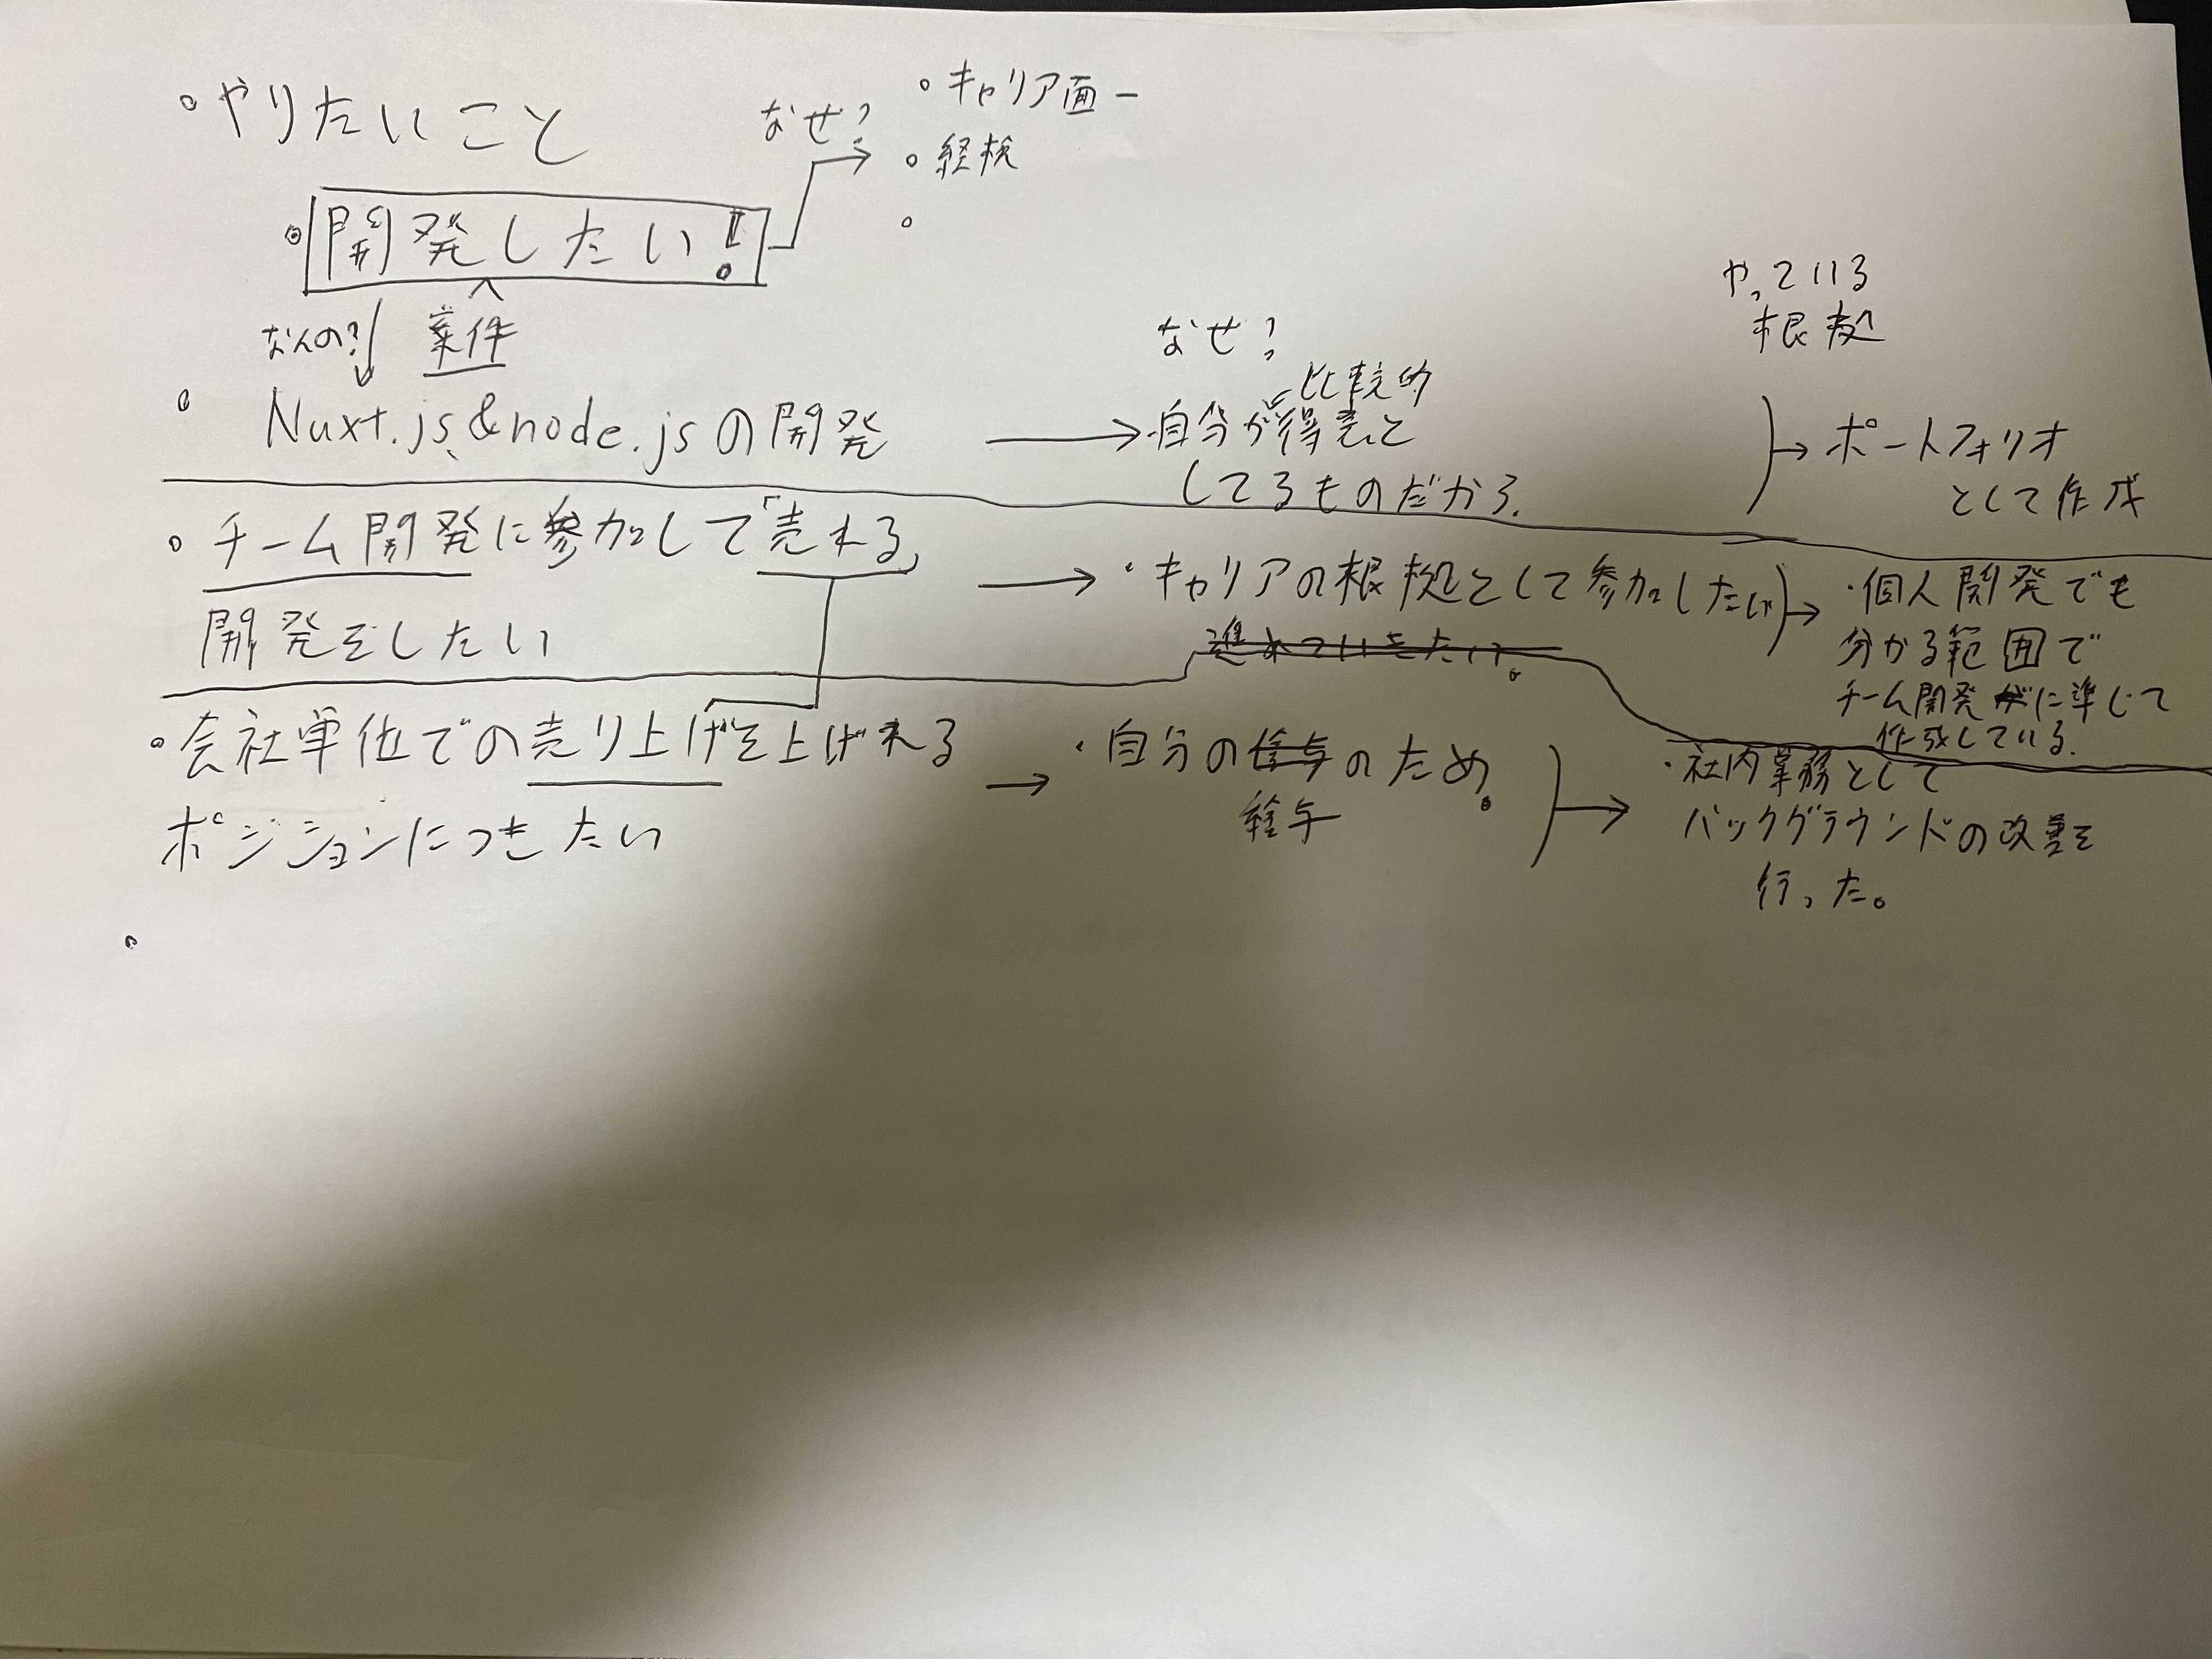 やりたいこと
なぜ?
キャリア面ー
経検
開発したい!
なんの?
案件
Nuxt.js&node.jsの開発
なぜ?
比較的
自分が得意と
してるものだから.
やっている
根拠
ポートフォリオ
として作成
チーム開発に参加して「売れる」
開発をしたい
キャリアの根拠として参加したい
進めていきたい。
・個人開発でも
分かる範囲で
チーム開発に準じて
作成している.
会社単位での売り上げを上げれる
ポジションにつきたい
・自分ののため。
給与
・社内業務として
バックグラウンドの改善を
行った。